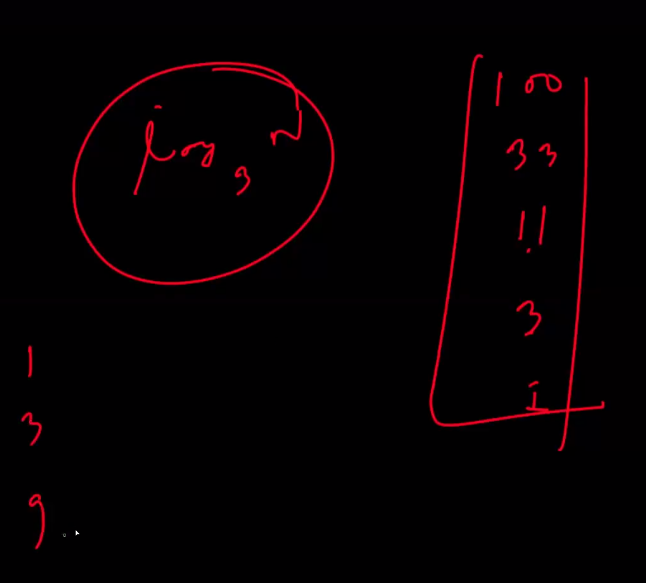 log₃ N
100
33
11
3
1
1
3
9